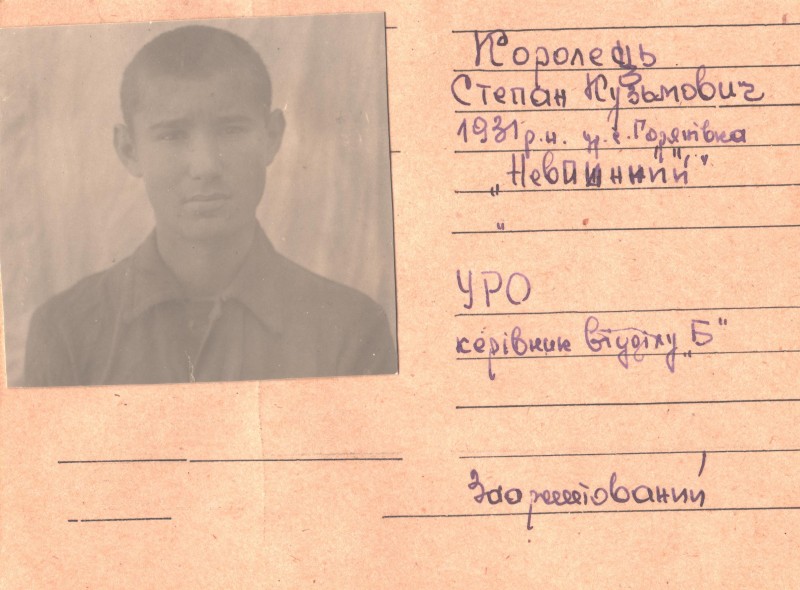 Королець
Степан Кузьмович
1931 р.н. с. Горячівка
„Невинний"
„
УРО
керівник відділу „Б"
Заарештований